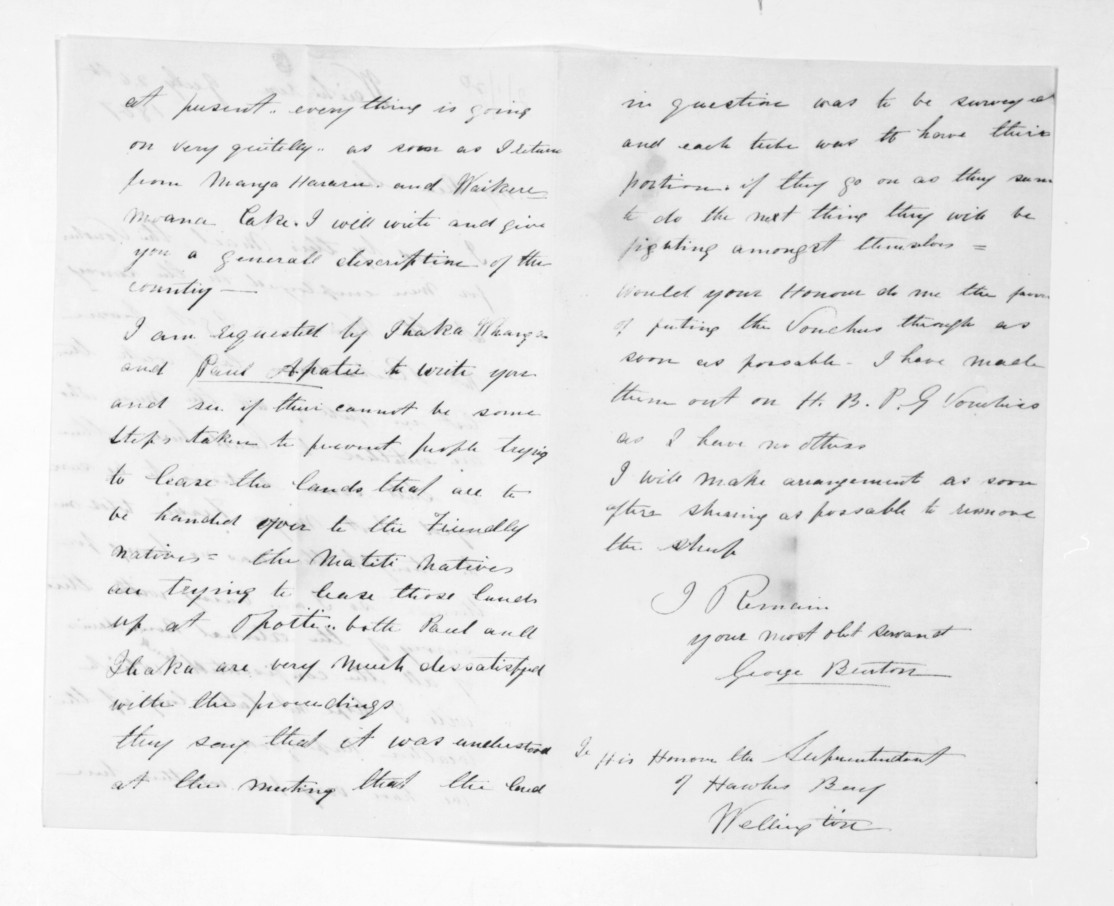 at present.. everything is going
on very quitelly.. as soon as I return
from Manga Hararu. and Waikere
Moana Lake. I will write and give
you a generall discription of the
country —
I am requested by Ihaka Whanga
and Paul Apatu to write you
and see if their cannot be some
steps taken to prevent people trying
to lease the lands that are to
be handed over to the Friendly
natives = the Matiti Natives
are trying to lease those lands
up at Opoiti.. both Paul and
Ihaka are very much dessatisfyed
with the proceedings
they say that it was understood
at the meeting that the land
in question was to be surveyed
and each tribe was to have their
portion. if they go on as they seem
to do the next thing they will be
fighting amongst themselves =
Would your Honour do me the favor
of puting the Vouchers through as
soon as possable - I have made
them out on H. B. P. G Vouchers
as I have no others
I will make arrangement as soon
after shearing as possable to remove
the sheep
I Remain
your most obt servant
George Burton
To His Honour the Superintendant
of Hawkes Bay
Wellington